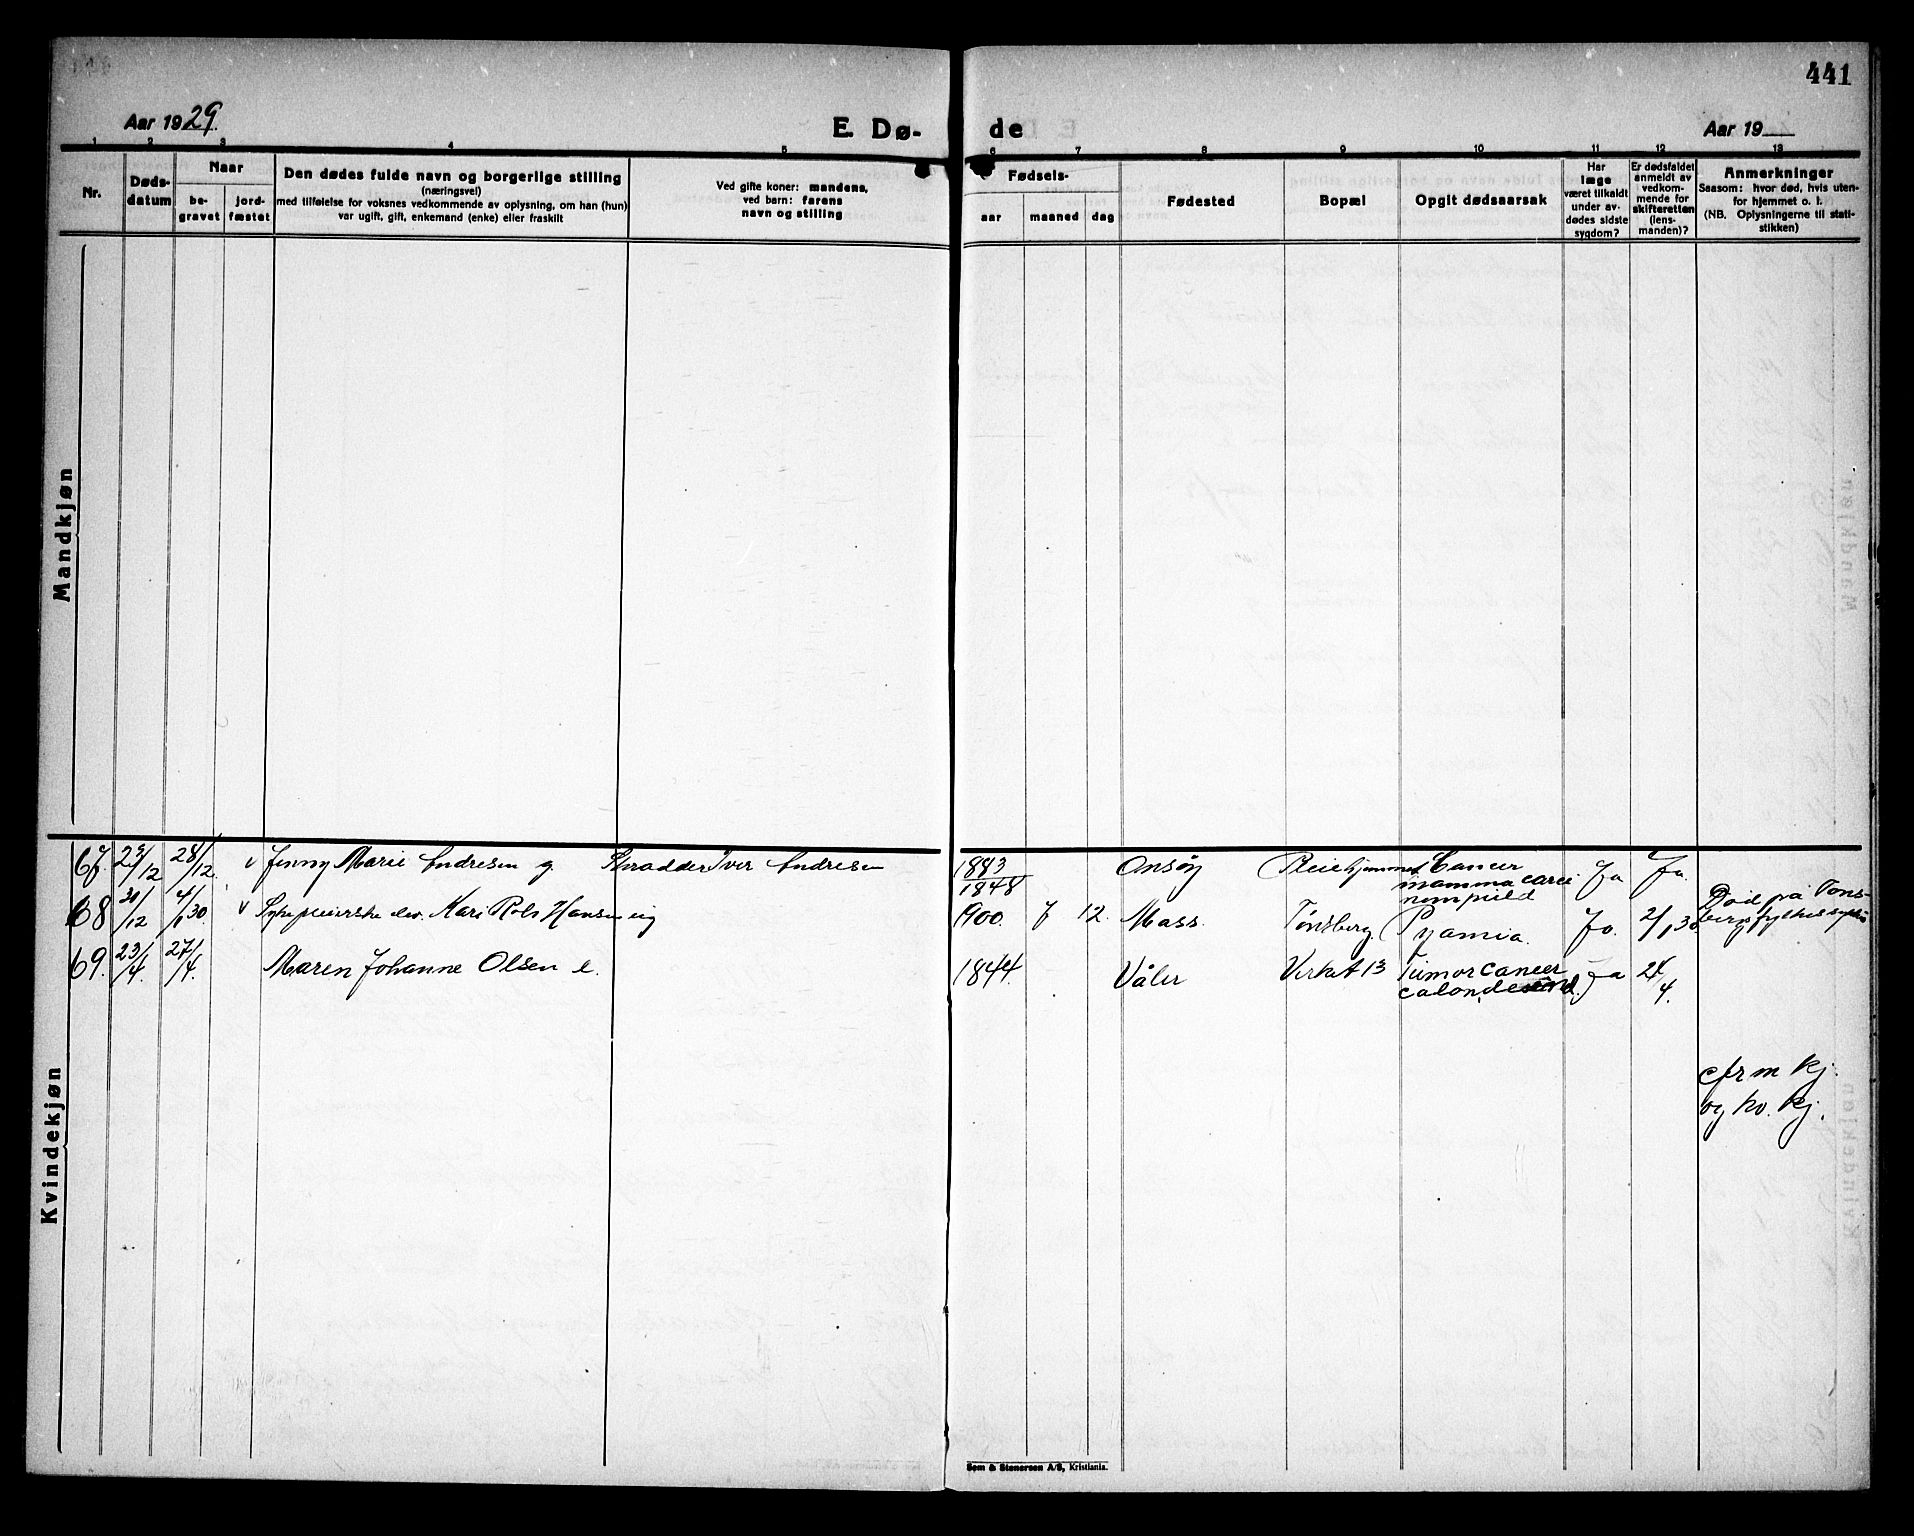 441
Aar 1929.
E. Dø-
de
Aar 19
1 2 3 4 5 6 7 8 9 10 11 12 13
Nr.
Døds-
datum
Naar
be-
gravet
jord-
fæstet
Den dødes fulde navn og borgerlige stilling
(næringsvei)
med tilføielse for voksnes vedkommende av oplysning, om han (hun)
var ugift, gift, enkemand (enke) eller fraskilt
Ved gifte koner: mandens,
ved barn: farens
navn og stilling
Fødsels-
aar
maaned
dag
Fødested
Bopæl
Opgit dødsaarsak
Har
læge
været tilkaldt
under av-
dødes sidste
sygdom?
Er dødsfaldet
anmeldt av
vedkom-
mende for
skifteretten
(lens-
manden)?
Anmerkninger
Saasom: hvor død, hvis uten-
for hjemmet o. l.
(NB. Oplysningerne til stati-
stikken)
Mandkjøn
Kvindekjøn
67. 23/12 28/12. v Jenny Marie Andresen g. Skrædder Iver Andresen 1883 1848 Onsøy Pleiehjemmet Cancer
mamma Ja Ja.
68 30/12 4/1 30. v Sykepleierske elev. Mari Hansen ug 1900. 7 12. Moss. Tønsberg. Pyæmia. Jo. 2/1 30 Død på Tøns-
berg fylkessykh
69. 23/4 27/4. Maren Johanne Olsen e. 1844. Våler Verket 13 Tumor cancer Ja 24/4.
cfr m kj.
og kv. kj.
Sem & Stenersen A/S, Kristiania.